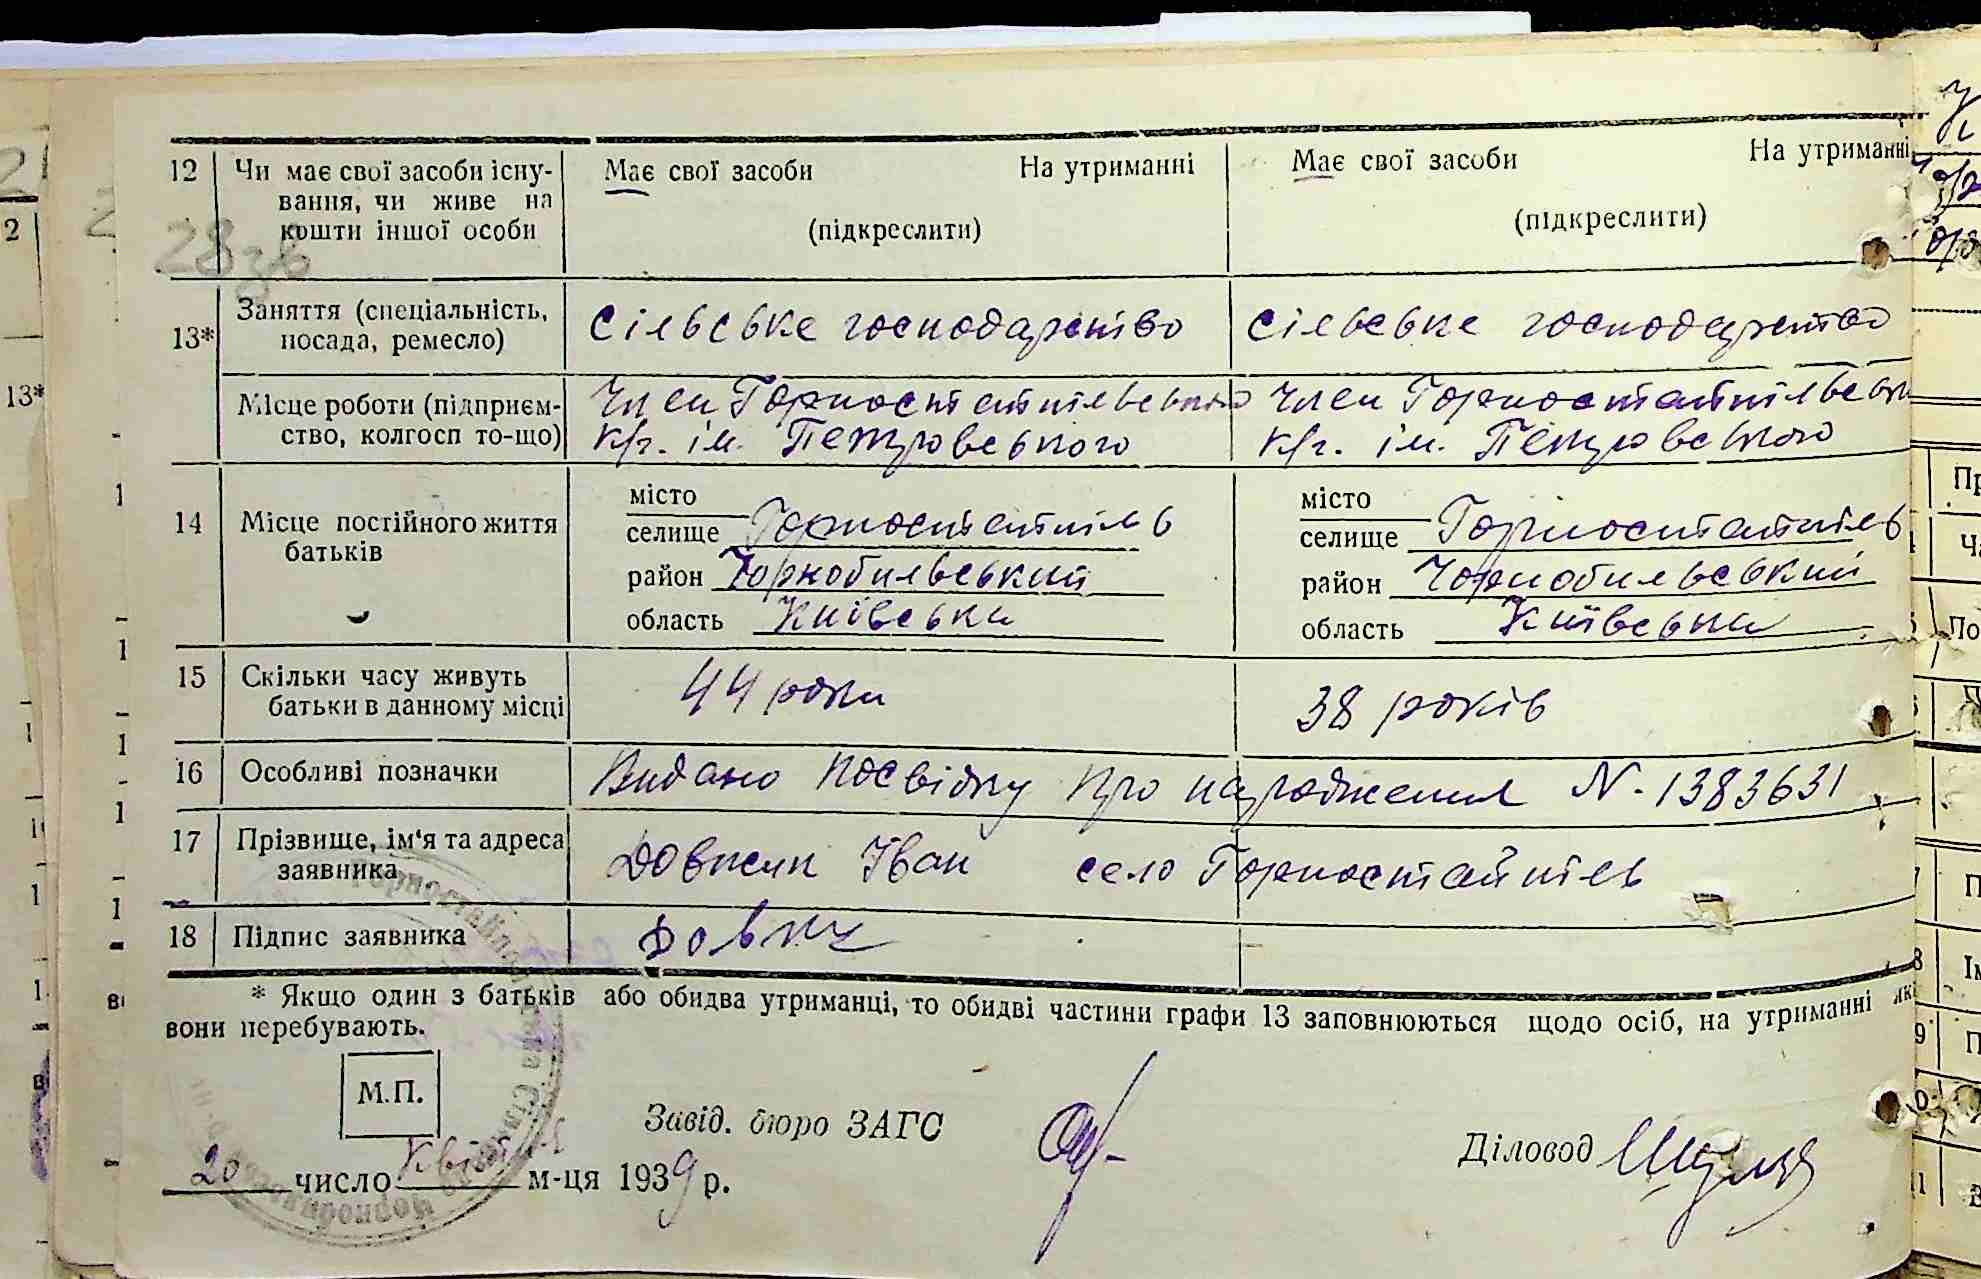 12 Чи має свої засоби існу-
вання, чи живе на
кошти іншої особи
Має свої засоби На утриманні
(підкреслити)
Має свої засоби На утриманні
(підкреслити)
28 зв
13* Заняття (спеціальність,
посада, ремесло)
Сільське господарство
Сільське господарство
Місце роботи (підприєм-
ство, колгосп то-що)
Член Горностайпільського
к/г. ім. Петровського
Член Горностайпільськ
к/г. ім. Петровського
14 Місце постійного життя
батьків
місто
селище Горностайпіль
район Чорнобильський
область Київська
місто
селище Горностайпіль
район Чорнобильський
область Київська
15 Скільки часу живуть
батьки в данному місці
44 роки
38 років
16 Особливі позначки
Видано посвідку про народження N. 1383631
17 Прізвище, ім'я та адреса
заявника
Довжик Іван село Горностайпіль
18 Підпис заявника
* Якщо один з батьків або обидва утриманці, то обидві частини графи 13 заповнюються щодо осіб, на утриманні які
вони перебувають.
М.П.
Завід. бюро ЗАГС
Діловод
20 число квітня м-ця 1939 р.